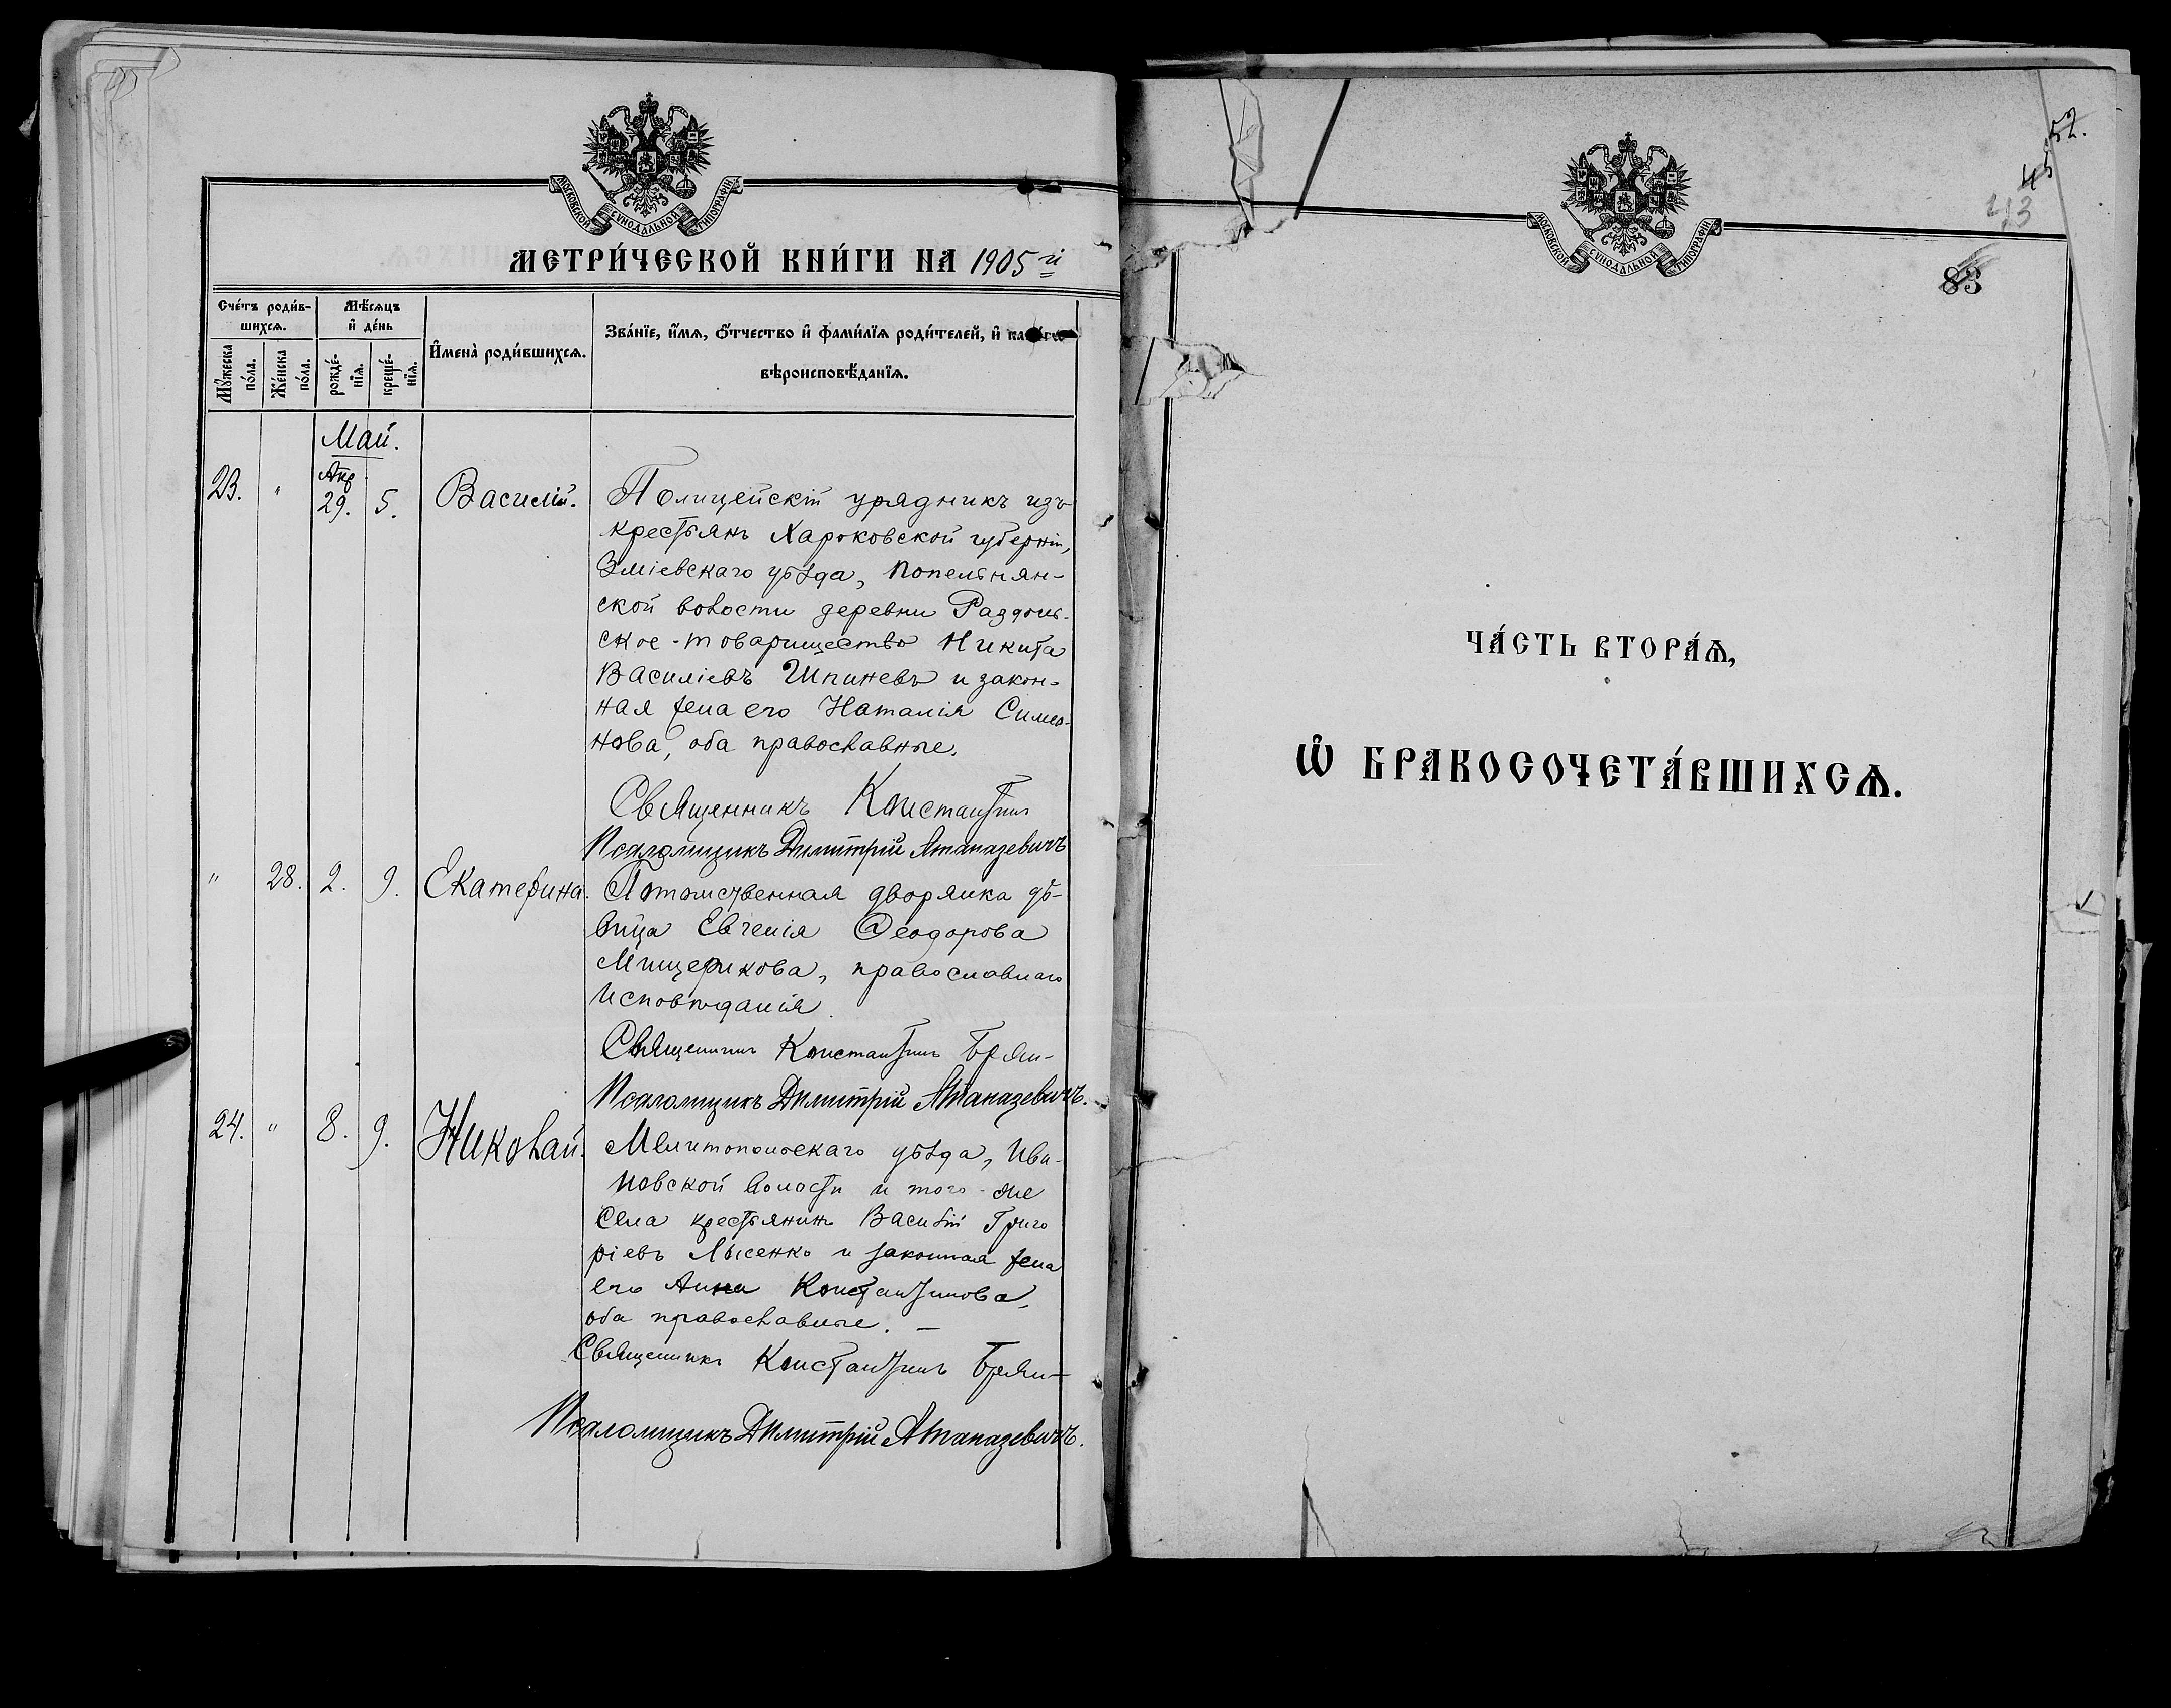 МОСКОВСКОЙ СѴНОДАЛЬНОЙ ТИПОГРАФІИ
МЕТРИ́ЧЕСКОЙ КНИ́ГИ НА 1905 й
Сче́тъ роди́в-
шихся.
Мѣ́сяцъ
и҆ де́нь
Мꙋ́жеска
по́ла.
Же́нска
по́ла.
рожде́-
нїѧ.
креще́-
нїѧ.
И҆мена̀ роди́вшихсѧ.
Зва́нїе, и҆́мѧ, ѻ҆́тчество и҆ фамн́лїѧ роди́телей, и҆
вѣроисповѣ́данїѧ.
Май.
23. " Апр 29. 5. Василій.
Полицейскій урядникъ изъ
крестьянъ Харьковской губерніи,
Зміевскаго уѣзда, Попельнян-
ской волости деревни Раздоль-
ское-товарищество Никита
Василіевъ Шпиневъ и закон-
ная жена его Наталія Симео-
нова, оба православные.
Священникъ Константинъ
Псаломщикъ Димитрій Атаназевичъ
" 28. 2. 9. Екатерина.
Потомственная дворянка дѣ-
вица Евгенія Ѳеодорова
Мищерикова, православнаго
исповѣданія.
Священникъ Константинъ
Псаломщикъ Димитрій Атаназевичъ.
24. " 8. 9. Николай.
Мелитопольскаго уѣзда, Ива-
новской волости и того-же
села крестьянинъ Василій Григо
ріевъ Лысенко и законная жена
его Анна Константинова,
оба православные. —
Священникъ Константинъ
Псаломщикъ Димитрій Атаназевичъ.
52.
45
43
83
МОСКОВСКОЙ СѴНОДАЛЬНОЙ ТИПОГРАФІИ
ЧА́СТЬ ВТОРА́Ѧ,
Ѡ҆ БРАКОСОЧЕТА́ВШИХСѦ.